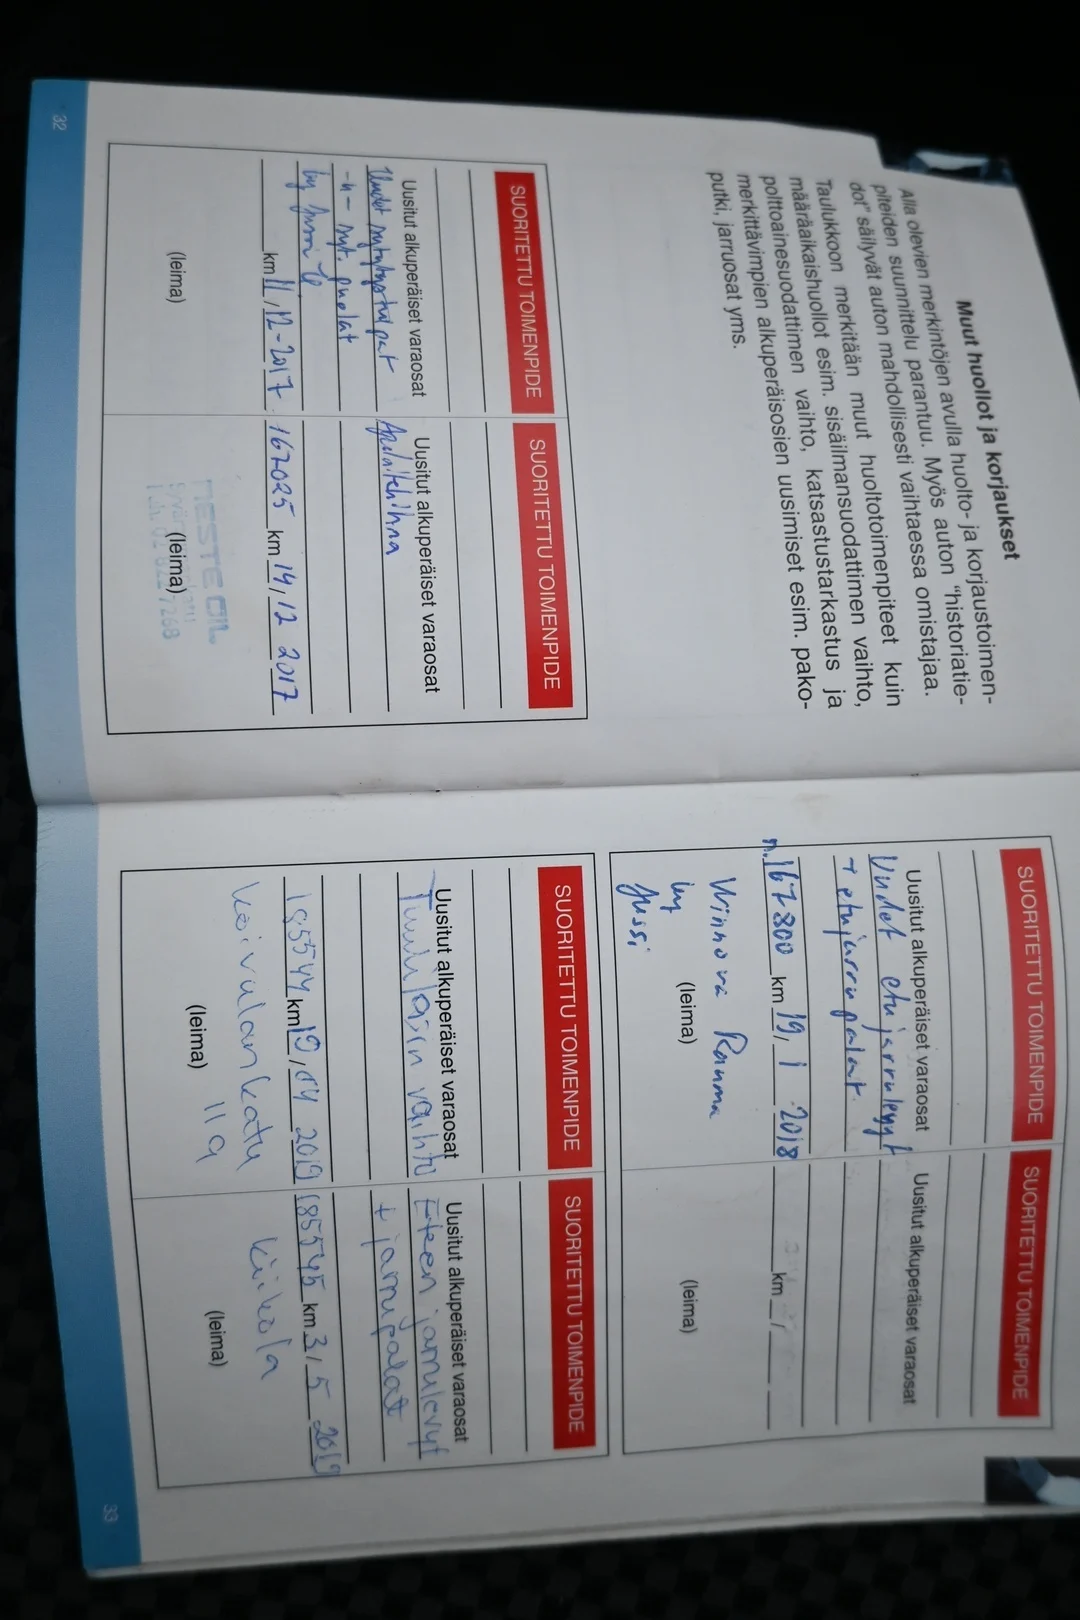 Muut huollot ja korjaukset
Alla olevien merkintöjen avulla huolto- ja korjaustoimen-
piteiden suunnittelu parantuu. Myös auton "historiatie-
dot" säilyvät auton mahdollisesti vaihtaessa omistajaa.
Taulukkoon merkitään muut huoltotoimenpiteet kuin
määräaikaishuollot esim. sisäilmansuodattimen vaihto,
polttoainesuodattimen vaihto, katsastustarkastus ja
merkittävimpien alkuperäisosien uusimiset esim. pako-
putki, jarruosat yms.
SUORITETTU TOIMENPIDE
Uusitut alkuperäiset varaosat
Uudet sytytystulpat
-"- syt. puolat
by Jussi
km 11,12-2017
(leima)
SUORITETTU TOIMENPIDE
Uusitut alkuperäiset varaosat
Apulaitehihna
167025 km 14,12 2017
(leima)
NESTE OIL
32
SUORITETTU TOIMENPIDE
Uusitut alkuperäiset varaosat
Uudet etujarrulevyt
+ etujarrupalat.
n.167800 km 19, 1 2018
(leima)
Winnova Rauma
by
Jussi
SUORITETTU TOIMENPIDE
Uusitut alkuperäiset varaosat
km /
(leima)
SUORITETTU TOIMENPIDE
Uusitut alkuperäiset varaosat
Tuulilasin vaihto
185544 km 19,04 2019
Koivulankatu
11 a
(leima)
SUORITETTU TOIMENPIDE
Uusitut alkuperäiset varaosat
Eteen jarrulevyt
+ jarrupalat
185545 km 3, 5 2019
Kiikola
(leima)
33